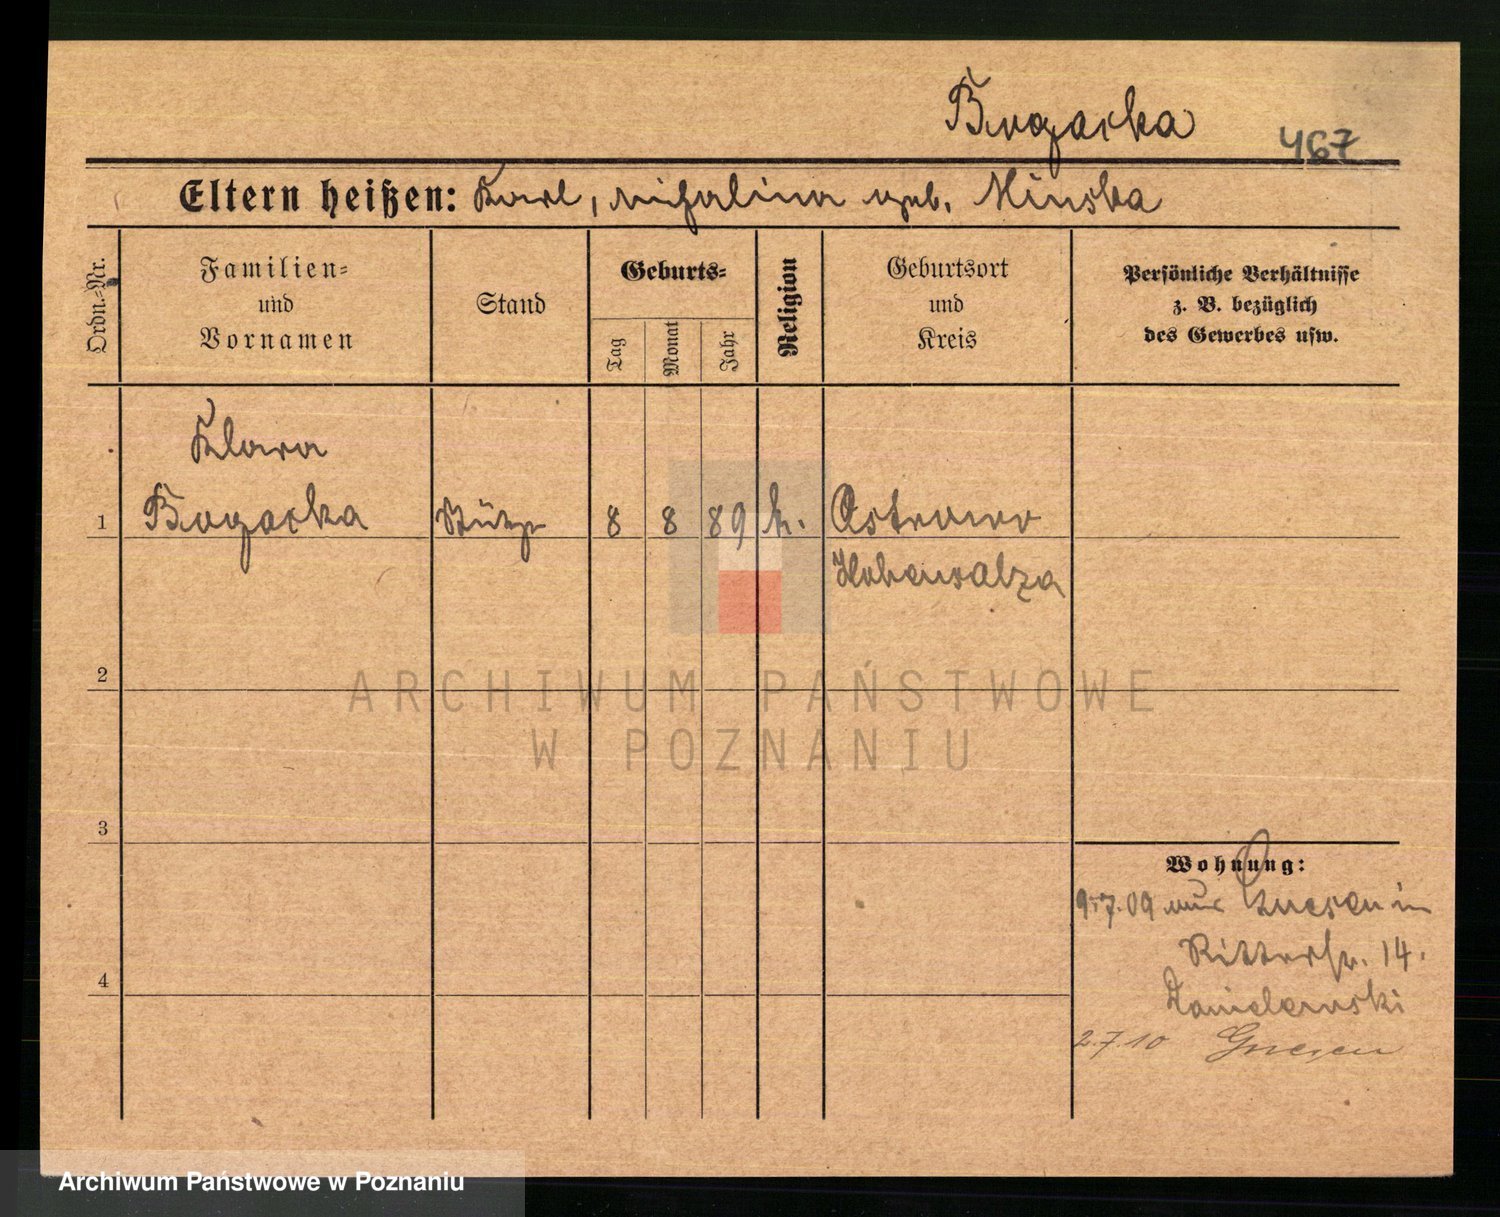 Bugacka
467
Eltern heißen: Karl, Michalina geb. Minska
Ordn.-Nr.
Familien-
und
Vornamen
Stand
Geburts-
Tag
Monat
Jahr
Religion
Geburtsort
und
Kreis
Persönliche Verhältnisse
z. B. bezüglich
des Gewerbes usw.
Klara
1 Bugacka Stütze 8 8 89 k. Ostrowo
Hohensalza
2
3
Wohnung:
9.7.09 aus Gnesen in
Ritterstr. 14.
4
2.7.10 Gnesen
ARCHIWUM PAŃSTWOWE
W POZNANIU
Archiwum Państwowe w Poznaniu